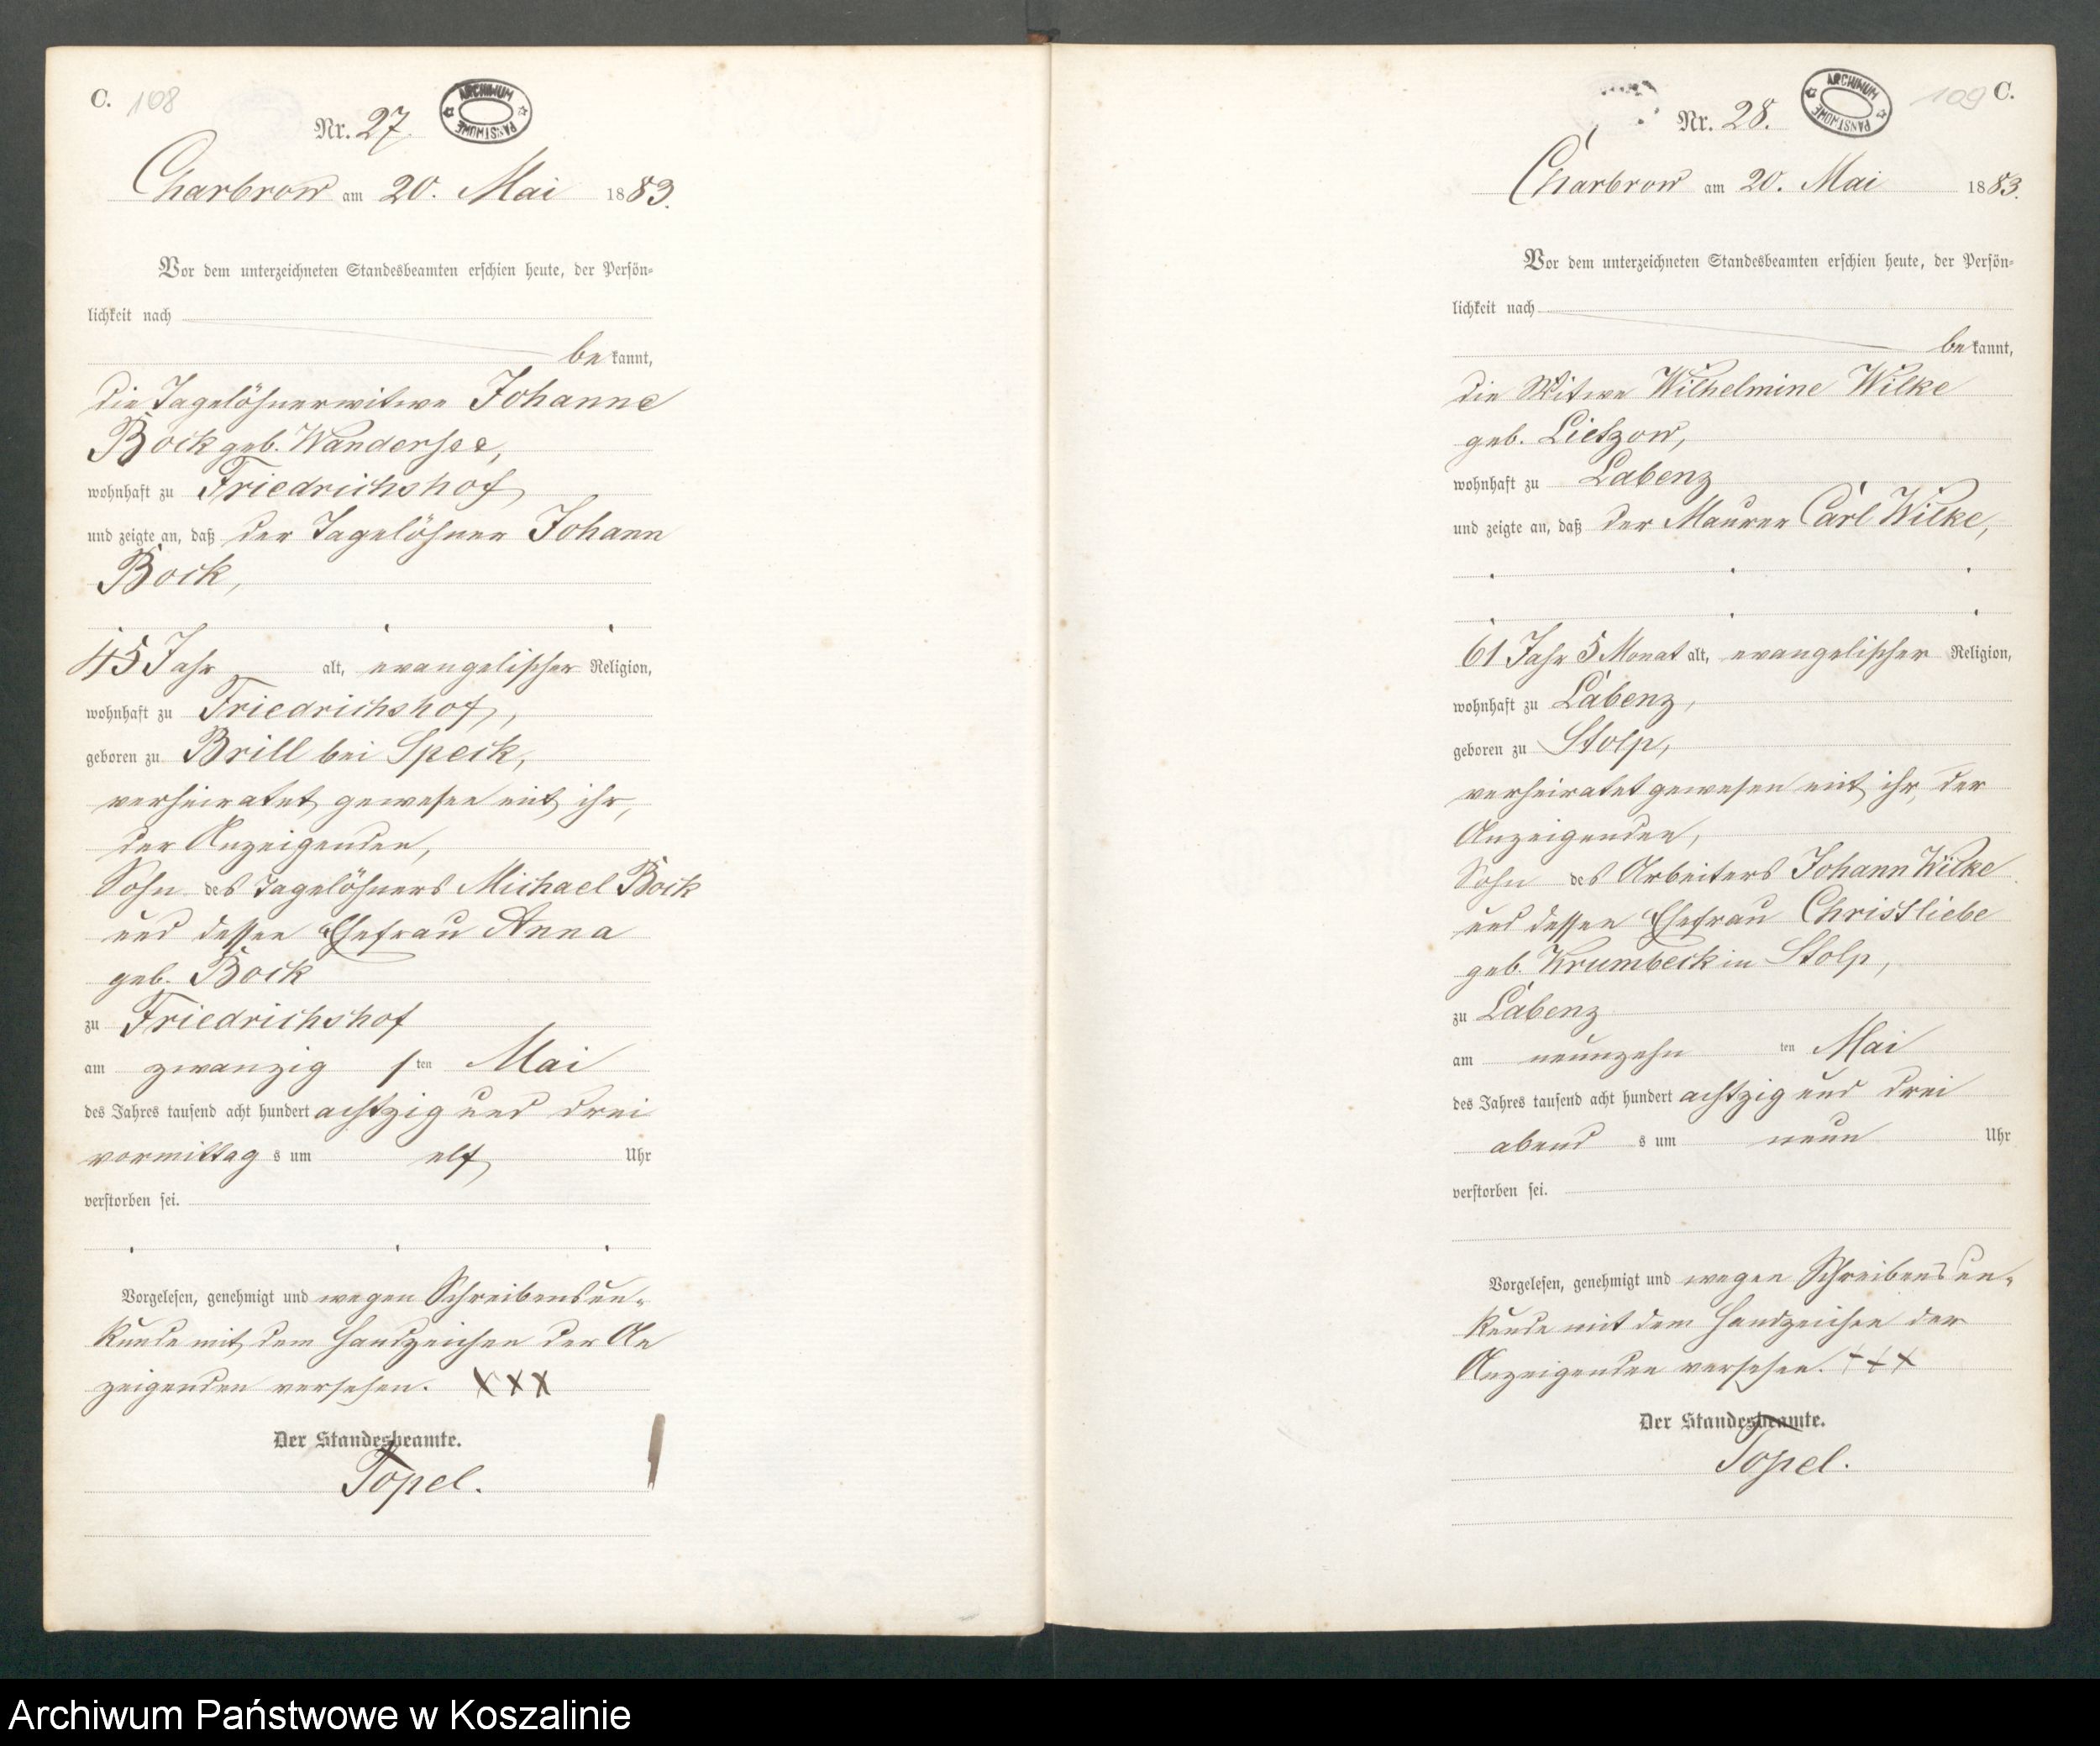 C. 108
Nr. 27.
ARCHIWUM PAŃSTWOWE
Charbrow am 20. Mai 1883.
Vor dem unterzeichneten Standesbeamten erschien heute, der Persön-
lichkeit nach
bekannt,
die Tagelöhnerwitwe Johanne
Bock geb. Wandersee,
wohnhaft zu Friedrichshof
und zeigte an, daß der Tagelöhner Johann
Bock,
45 Jahr alt, evangelischer Religion,
wohnhaft zu Friedrichshof,
geboren zu Brill bei Speck,
verheiratet gewesen mit ihr,
der Anzeigenden,
Sohn des Tagelöhners Michael Bock
und dessen Ehefrau Anna
geb. Bock
zu Friedrichshof
am zwanzigsten Mai
des Jahres tausend acht hundert achtzig und drei
vormittags um elf Uhr
verstorben sei.
Vorgelesen, genehmigt und wegen Schreibensun-
kunde mit dem Handzeichen der An
zeigenden versehen. XXX
Der Standesbeamte.
Topel.
109 C.
Nr. 28.
ARCHIWUM PAŃSTWOWE
Charbrow am 20. Mai 1883.
Vor dem unterzeichneten Standesbeamten erschien heute, der Persön-
lichkeit nach
bekannt,
die Witwe Wilhelmine Wilke
geb. Lietzow,
wohnhaft zu Labenz
und zeigte an, daß der Maurer Carl Wilke,
61 Jahr 5 Monat alt, evangelischer Religion,
wohnhaft zu Labenz,
geboren zu Stolp,
verheiratet gewesen mit ihr, der
Anzeigenden,
Sohn des Arbeiters Johann Wilke
und dessen Ehefrau Christliebe
geb. Krumbeck in Stolp,
zu Labenz
am neunzehnten Mai
des Jahres tausend acht hundert achtzig und drei
abends um neun Uhr
verstorben sei.
Vorgelesen, genehmigt und wegen Schreibensun-
kunde mit dem Handzeichen der
Anzeigenden versehen. +++
Der Standesbeamte.
Topel.
Archiwum Państwowe w Koszalinie